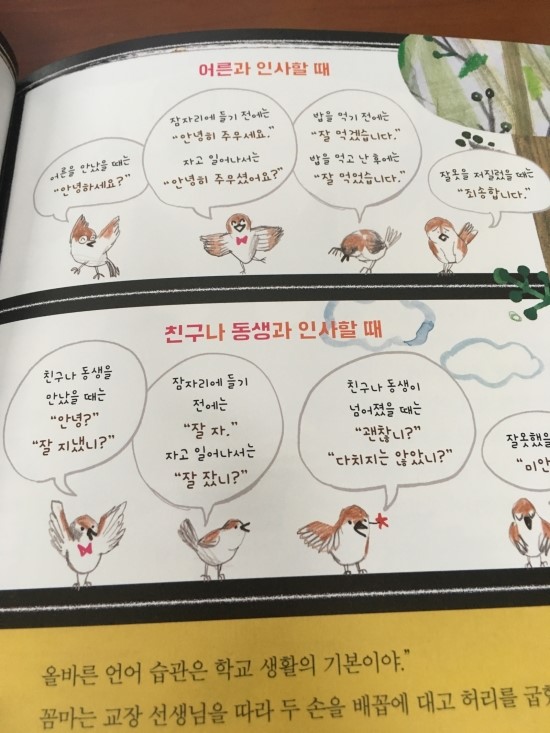 어른과 인사할 때
어른을 만났을 때는
"안녕하세요?"
잠자리에 들기 전에는
"안녕히 주무세요."
자고 일어나서는
"안녕히 주무셨어요?"
밥을 먹기 전에는
"잘 먹겠습니다."
밥을 먹고 난 후에는
"잘 먹었습니다."
잘못을 저질렀을 때는
"죄송합니다."
친구나 동생과 인사할 때
친구나 동생을
만났을 때는
"안녕?"
"잘 지냈니?"
잠자리에 들기
전에는
"잘 자."
자고 일어나서는
"잘 잤니?"
친구나 동생이
넘어졌을 때는
"괜찮니?"
"다치지는 않았니?"
잘못했을
"미안
올바른 언어 습관은 학교 생활의 기본이야."
꼼마는 교장 선생님을 따라 두 손을 배꼽에 대고 허리를 굽혔